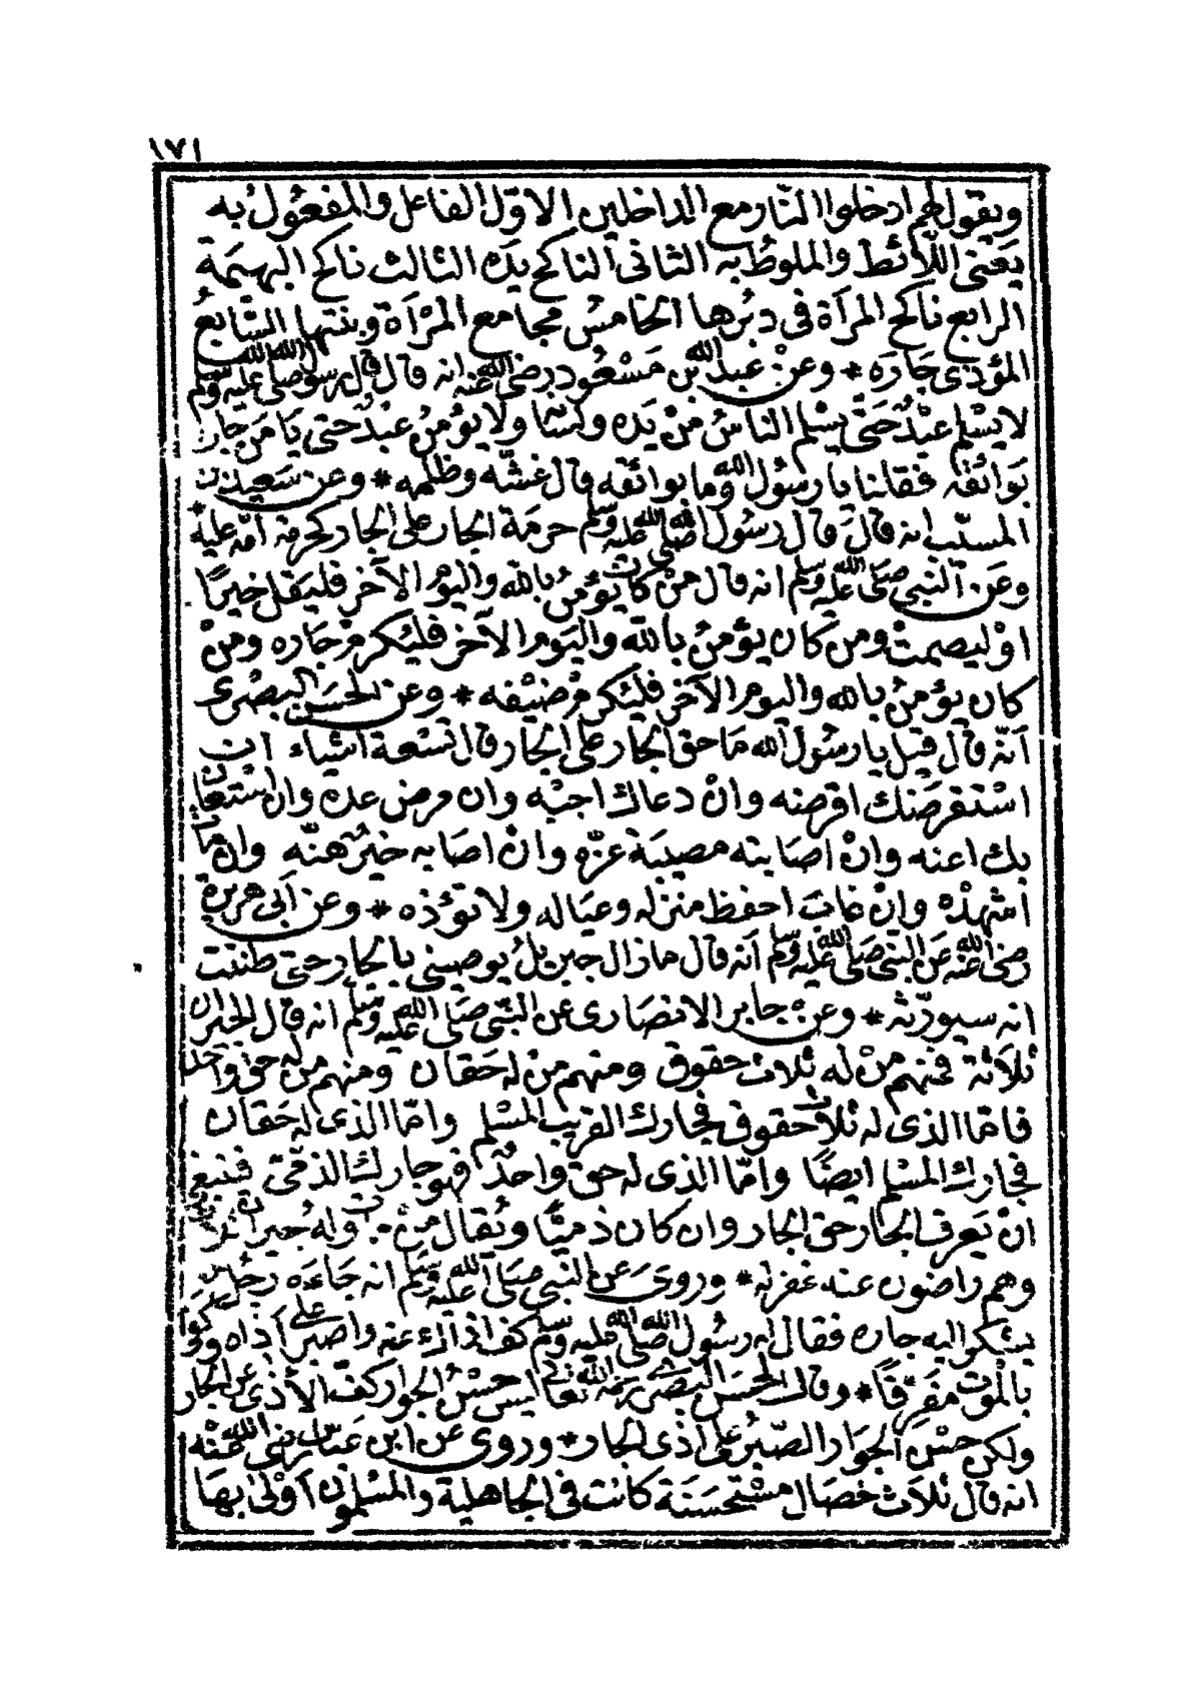 ١٧١
ويقول لهم ادخلوا النار مع الداخلين الاوّل الفاعل والمفعُول به
يَعنى اللّائط والملوط به الثانى الناكح يَده الثالث ناكح البهيمَة
الرابع ناكح المرأة فى دبُرها الخامسُ مجامع المرْأة وبنتها السّابعُ
المؤذى جَارَه * وعنْ عبد الله بن مَسْعُود رضى الله عنه انه قال قال رسول الله صلى الله عليه وسلم
لا يسْلم عبْد حَتّى يسْلم الناسُ منْ يَده ولسَانه ولا يؤمنُ عَبْد حتى يَا من جاره
بَوائقه فقلنا يا رسُول الله وما بوائقه قال غشّه وظلمه * وعن سَعيد بن
المسيّب انه قالَ قال رسُول الله صلى الله عليه وسلم حرمَة الجار على الجار كحرمة امّه عليه *
وعَن النبى صَلى الله عَليه وسلم انه قال منْ كان يؤمنُ بالله واليوم الآخر فليَقل خيرًا
اوْ ليصمتْ ومن كان يؤمنُ بالله واليَوم الآخر فليُكرمْ جَاره ومنْ
كان يؤمنُ بالله واليوم الآخر فليُكرمْ ضيْفه * وعن الحسَن البصْرى
أنّه قال قيل يا رسُول الله مَا حق الجار على الجار قال تسْعة اشياء ان
اسْتقرضَنك اقرضنه وانْ دعاك اجبْه وان مرض عده وان استعَان
بك اعنه وانْ اصَابته مصيبَة عزّه وانْ اصَابه خيْرٌ هنّه وان مَات
اشهدْه وانْ غابَ احفظ منزله وعيَاله ولا تؤذه * وعن أبى هريرة
رضى الله عنه عَن النبى صَلى الله عليه وسلم أنه قال ما زال جبريلُ يوصينى بالجار حتى ظننت
انه سيورّثه * وعن جابر الانصَارى عن النبّى صَلى الله عليه وسلم انه قال الجيران
ثلاَثة فمنهم منْ له ثلاث حقوق ومنهم منْ له حَقان ومنهم من له حق واحد
فامّا الذى له ثلاث حقوق فجارك القريب المسْلم وامّا الذى له حَقان
فجارك المسْلم ايضًا وامّا الذى له حق واحدٌ فهو جارك الذمّى فينبغى
انْ يَعرف الجار حق الجار وان كان ذميًّا ويُقال منْ مات وله جيران
وهم راضون عنه غفر له * وروىَ عَن النبى صَلى الله عليه وسلم انه جَاءَه رجُل
يشكو اليه جاره فقال له رسُول الله صلى الله عليه وسلم كف اذاك عنه واصبر على أذاه وكفى
بالموت مفَرّقاً * وقال الحسَن البَصْرى رَحمه الله تعالى ليس حسْنُ الجوار كفّ الأذى عن الجار
ولكن حسْن الجوَار الصّبرُ على اذى الجار * وروى عن ابن عَبّاس رضى الله عنه
انه قال ثلاَث خصَال مسْتحسَنة كانت فى الجاهلية والمسْلمون أوْلى بهَا